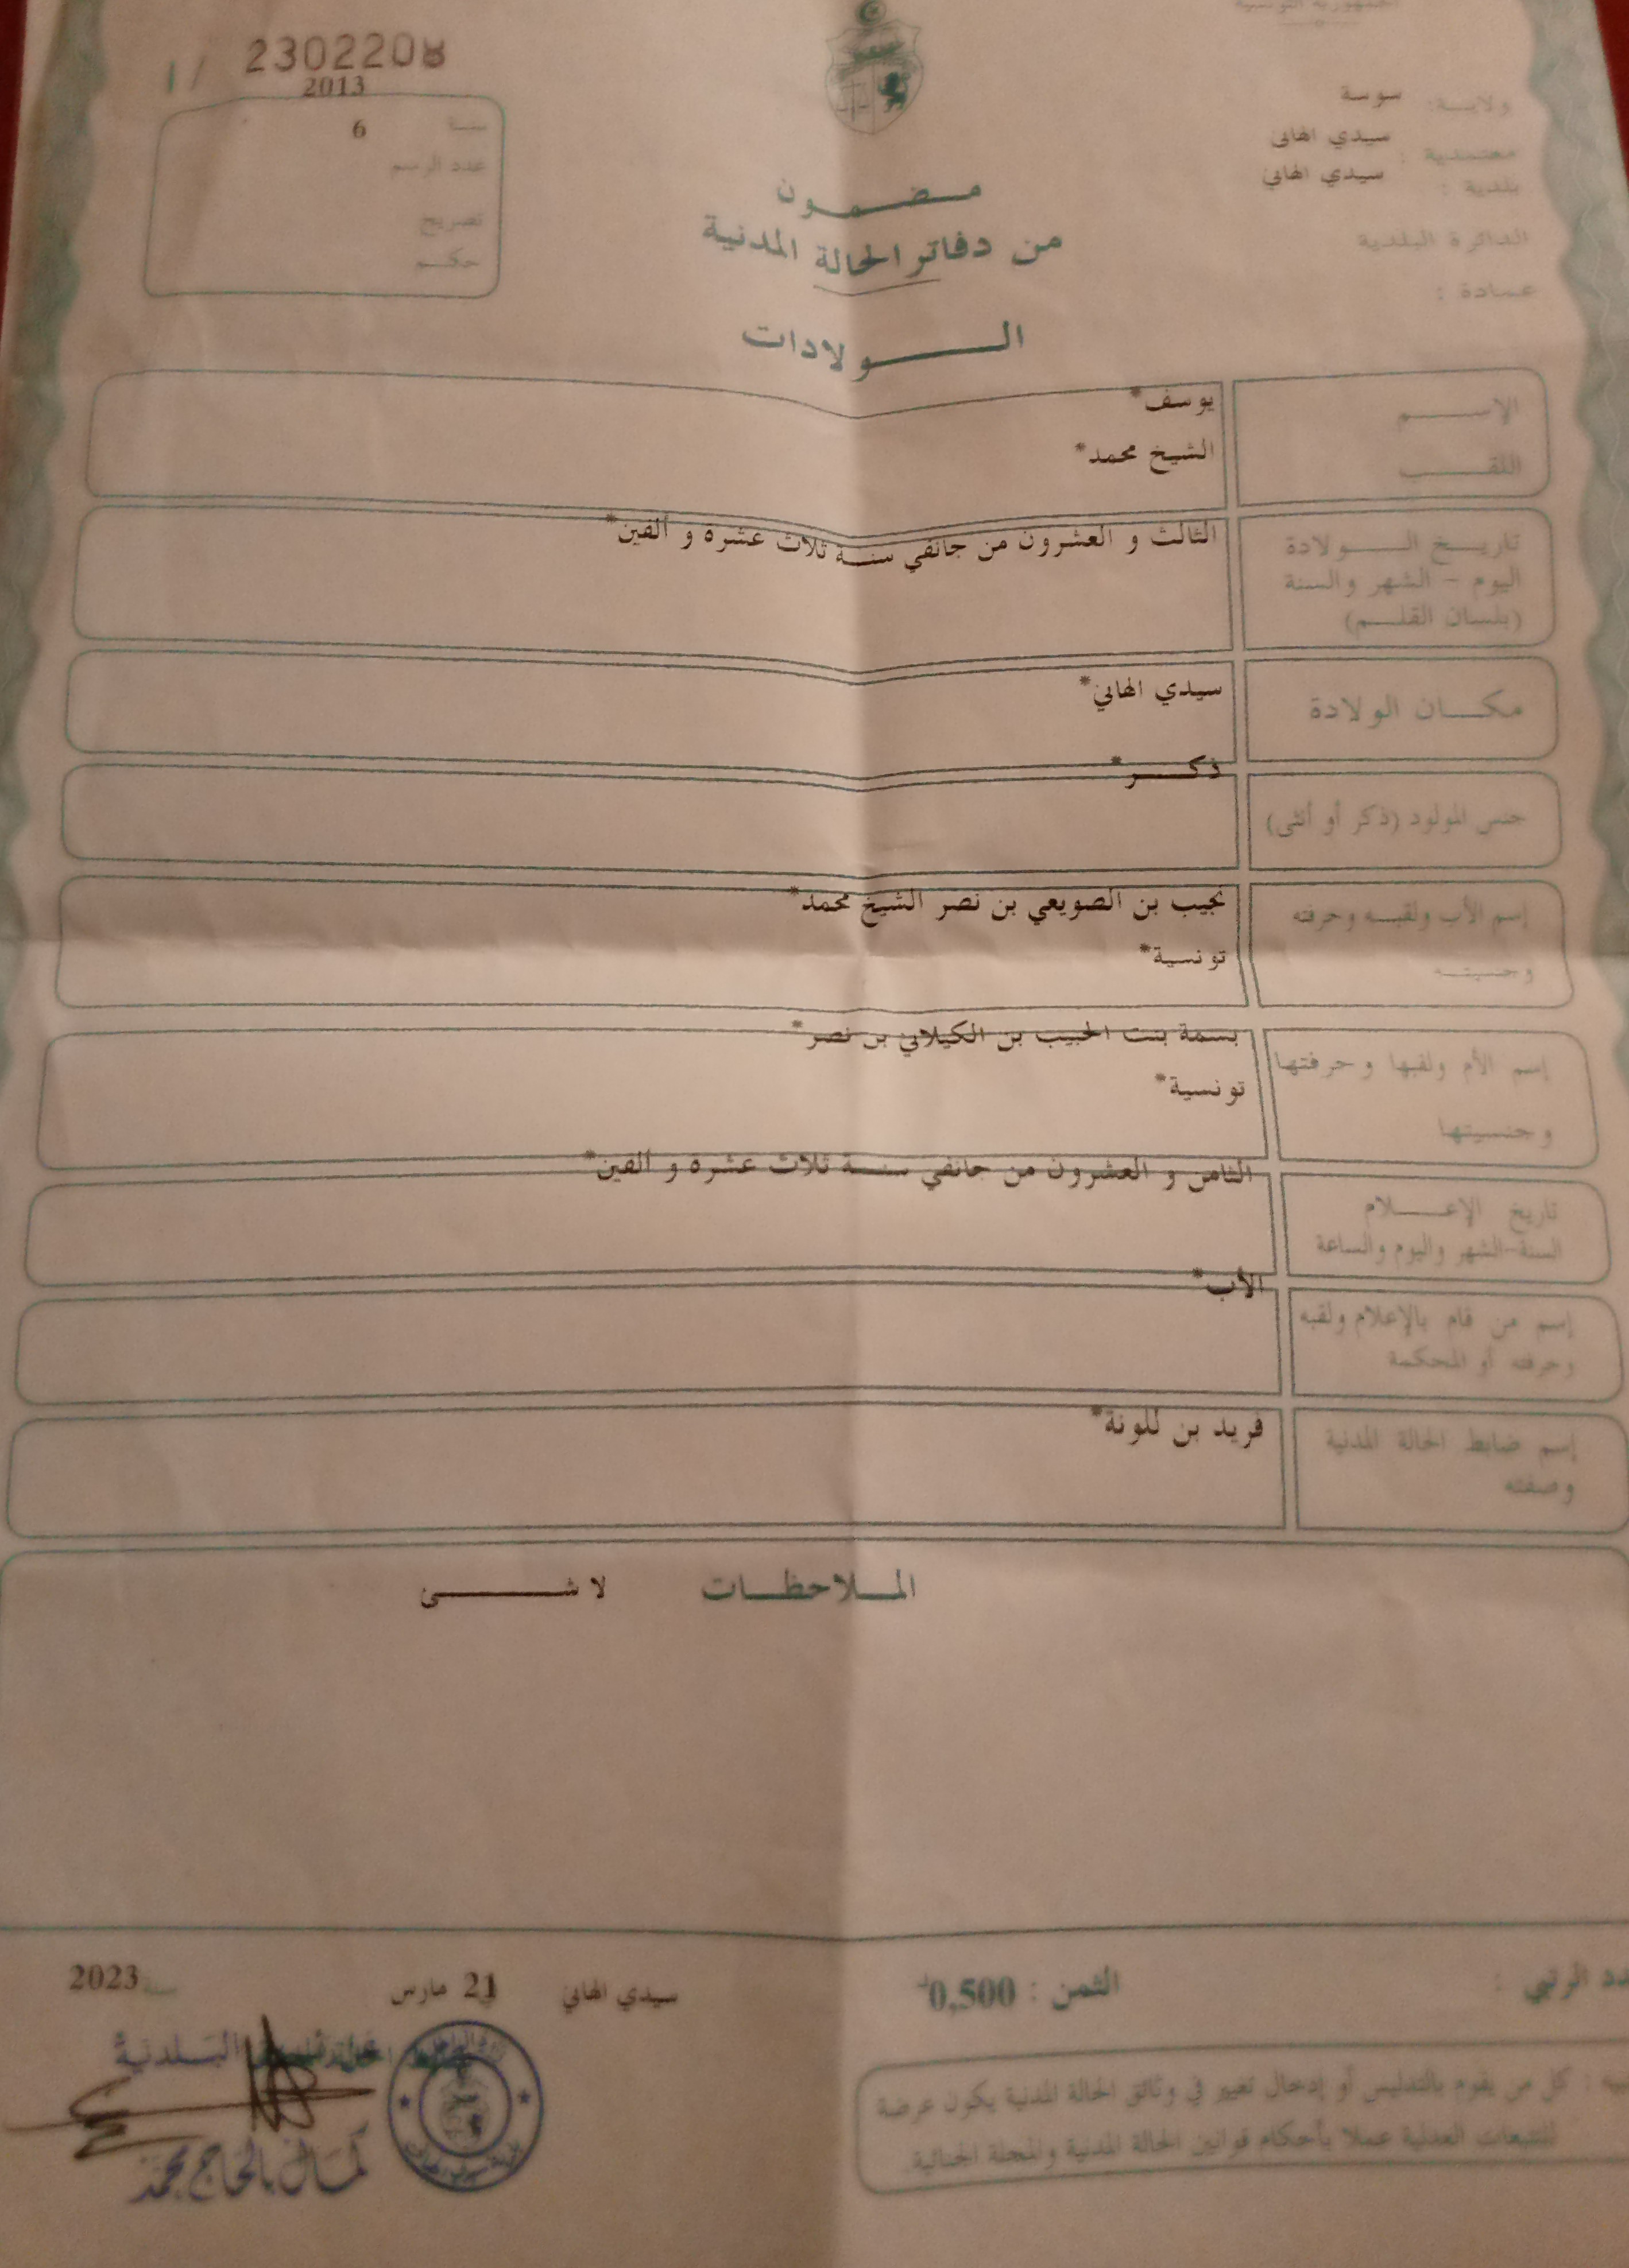 الجمهورية التونسية
2302208
1 /
2013
سنة
6
عدد الرسم
تصريح
حكم
ولاية: سوسة
معتمدية : سيدي الهاني
بلدية : سيدي الهاني
الدائرة البلدية
عمادة :
مضمون
من دفاتر الحالة المدنية
الولادات
الاسم يوسف*
اللقب الشيخ محمد*
تاريخ الولادة الثالث و العشرون من جانفي سنة ثلاث عشرة و ألفين*
اليوم - الشهر والسنة
(بلسان القلم)
مكان الولادة سيدي الهاني*
جنس المولود (ذكر أو أنثى) ذكر*
إسم الأب ولقبه وحرفته نجيب بن الصويعي بن نصر الشيخ محمد*
وجنسيته تونسية*
إسم الأم ولقبها وحرفتها بسمة بنت الحبيب بن الكيلاني بن نصر*
وجنسيتها تونسية*
تاريخ الإعلام الثامن و العشرون من جانفي سنة ثلاث عشرة و ألفين*
السنة-الشهر واليوم والساعة
إسم من قام بالإعلام ولقبه الأب*
وحرفته أو المحكمة
إسم ضابط الحالة المدنية فريد بن للونة*
وصفته
الملاحظات لا شئ
الرتبي :
الثمن : 0,500د
سيدي الهاني 21 مارس سنة 2023
البلدية
كمال بالحاج محمد
كل من يقوم بالتدليس أو إدخال تغيير في وثائق الحالة المدنية يكون عرضة
للتتبعات العدلية عملا بأحكام قوانين الحالة المدنية والمجلة الجنائية.